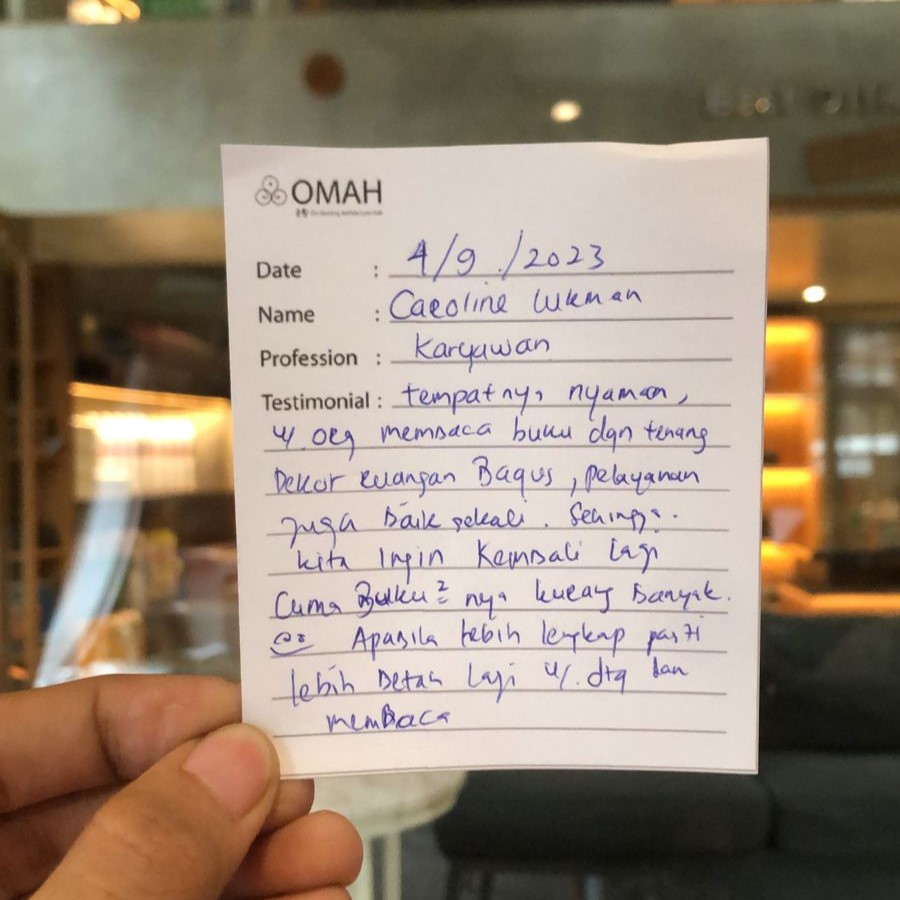 OMAH
Date : 4/9/2023
Name : Caroline Lukman
Profession : Karyawan
Testimonial : tempatnya nyaman,
u/ org membaca buku dgn tenang
Dekor ruangan Bagus, pelayanan
juga baik sekali. Sehingga
kita Ingin Kembali lagi
Cuma Buku² nya kurang Banyak.
Apabila lebih lengkap pasti
lebih Betah lagi u/. dtg dan
memBaca